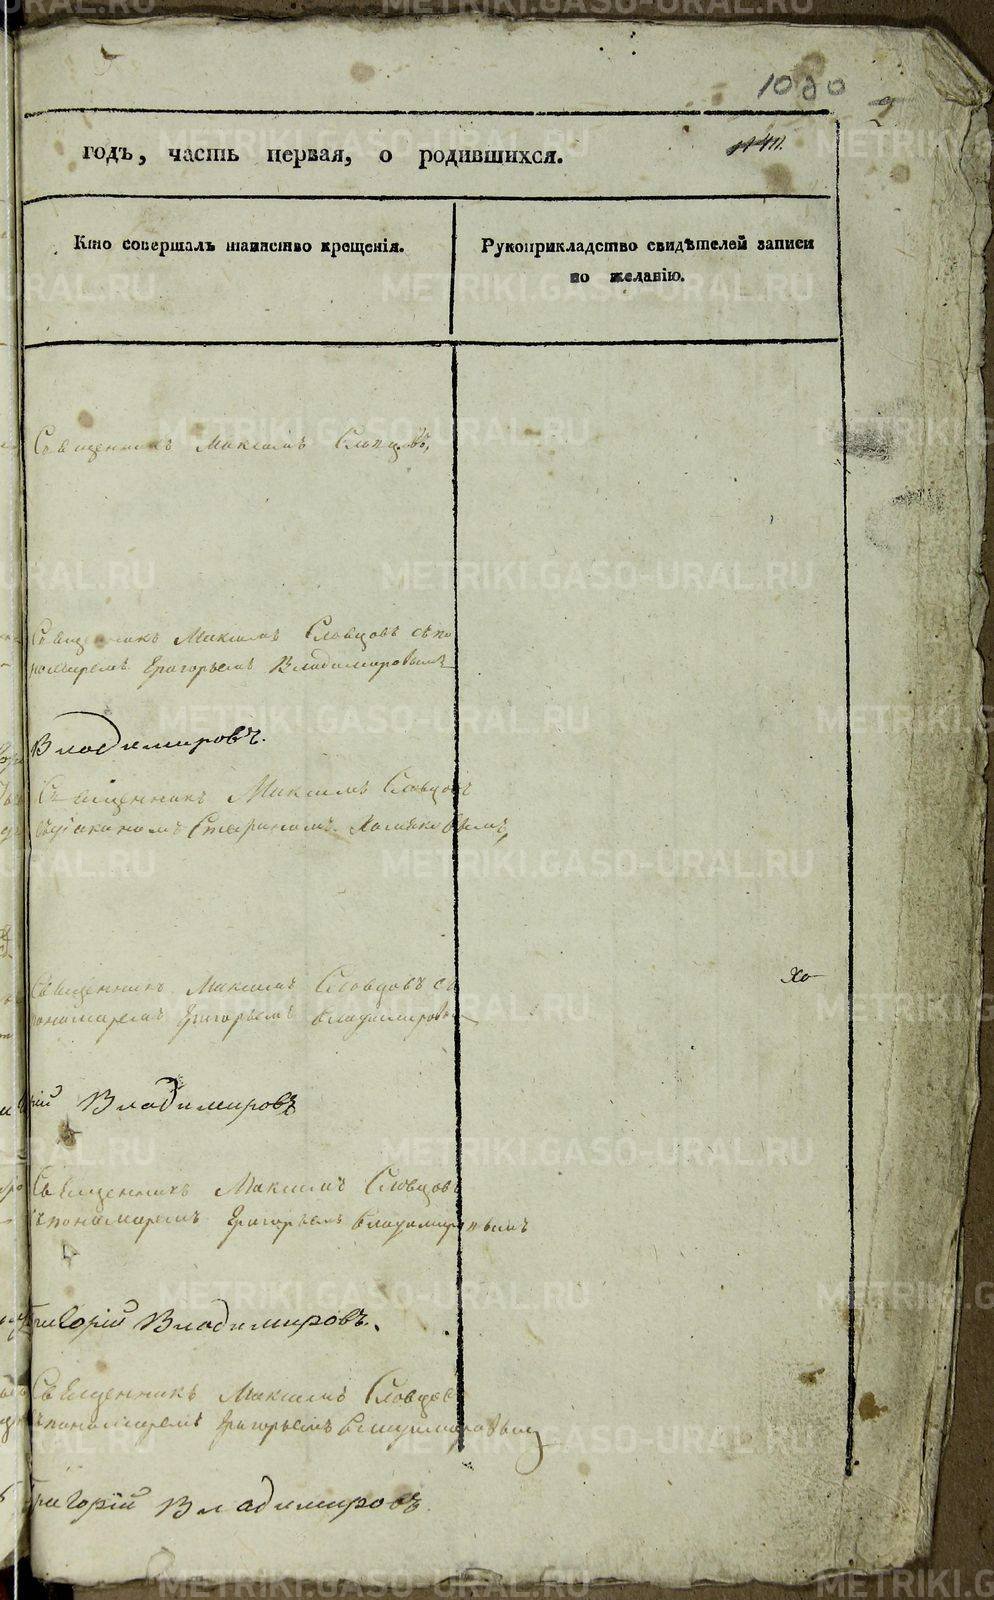 1020
годъ, часть первая, о родившихся.
Кто совершалъ таинство крещенія.
Рукоприкладство свидѣтелей записи
по желанію.
Священникъ Максимъ
Священникъ Максимъ Словцовъ съ по
номаремъ Григорьемъ Владимировымъ
Владимировъ.
Священникъ Максимъ Словцовъ
съ діакономъ Стефаномъ Хомяковымъ,
Священникъ Максимъ Словцовъ съ
пономаремъ Григорьемъ Владимировы
Хо
рій Владимировъ
Священникъ Максимъ Словцовъ
съ пономаремъ Григорьемъ Владимировымъ
Григорій Владимировъ.
Священникъ Максимъ Словцовъ
съ пономаремъ Григорьемъ Владимировым
Григорій Владимировъ.
METRIKI.GASO-URAL.RU